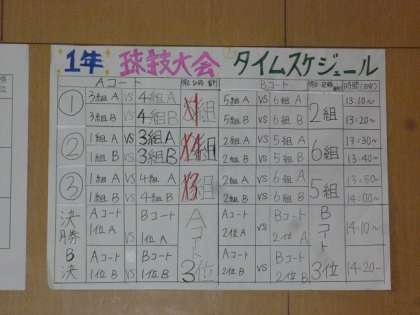 1年 球技大会 タイムスケジュール
Aコート Bコート
① 3組A VS 4組A 5組A VS 6組A 2組 13:10~
3組B VS 4組B 5組B VS 6組B 13:20~
② 1組A VS 3組A 2組A VS 5組A 6組 13:30~
1組B VS 3組B 2組B VS 5組B 13:40~
③ 1組A VS 4組A 2組A VS 6組A 5組 13:50~
1組B VS 4組B 2組B VS 6組B 14:00~
決勝 Aコート1位A VS Bコート1位A Aコート Aコート2位A VS Bコート2位A Bコート 14:10~
B決 Aコート1位B VS Bコート1位B 3位 Aコート2位B VS Bコート2位B 3位 14:20~